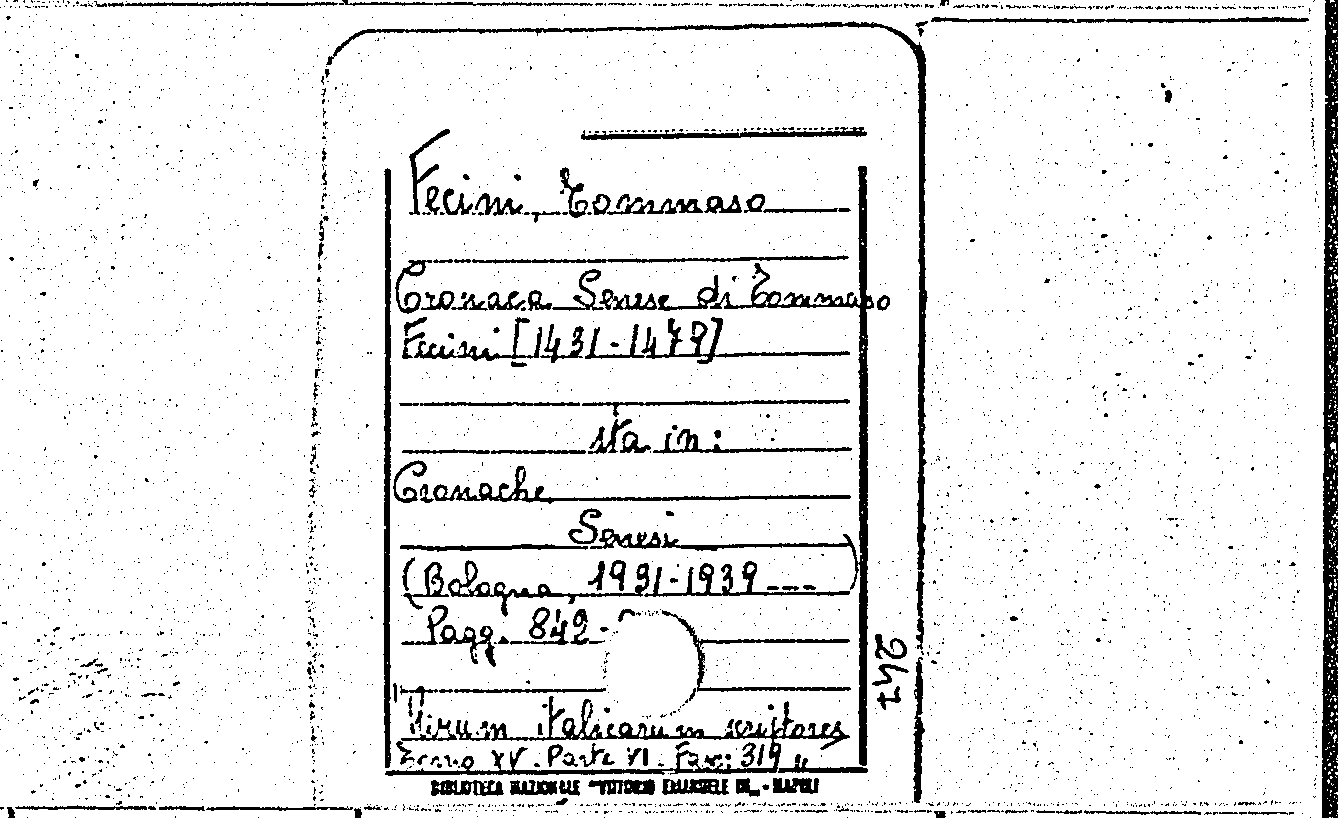 Fecini, Tommaso
Cronaca Senese di Tommaso
Fecini [1431-1479]
sta in:
Cronache
Senesi
(Bologna, 1931-1939 --- )
Pagg. 842-
247
"Rerum italicarum scriptores
Tomo XV. Parte VI. Fasc: 319 "
BIBLIOTECA NAZIONALE "VITTORIO EMANUELE III" - NAPOLI